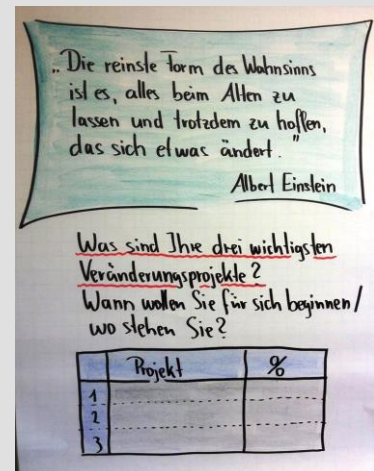 „Die reinste Form des Wahnsinns
ist es, alles beim Alten zu
lassen und trotzdem zu hoffen,
das sich etwas ändert."
Albert Einstein
Was sind Ihre drei wichtigsten
Veränderungsprojekte?
Wann wollen Sie für sich beginnen/
wo stehen Sie?
Projekt %
1
2
3